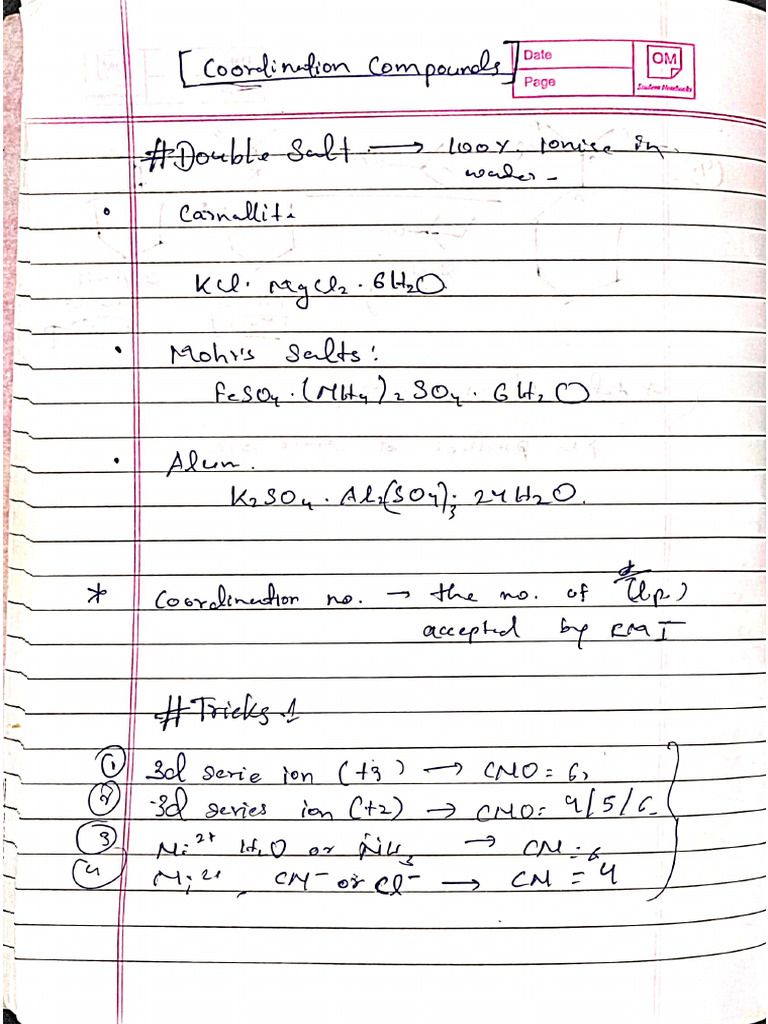 [Coordination Compounds]
Date
Page
OM
Student Notebooks
#Double Salt → 100% Ionise in
water -
• Carnallite
KCl. MgCl₂ . 6H₂O
• Mohr's Salts:
FeSO₄ . (NH₄)₂SO₄ . 6H₂O
• Alum.
K₂SO₄ . Al₂(SO₄)₃ 24H₂O.
* Coordination no. → the no. of (lp)
accepted by
#Tricks 1
① 3d serie ion (+3) → CNO = 6,
② 3d series ion (+2) → CNO = 4/5/6
③ Ni²⁺ H₂O or NH₃ → CN = 6
④ Ni²⁺, CN⁻ or Cl⁻ → CN = 4